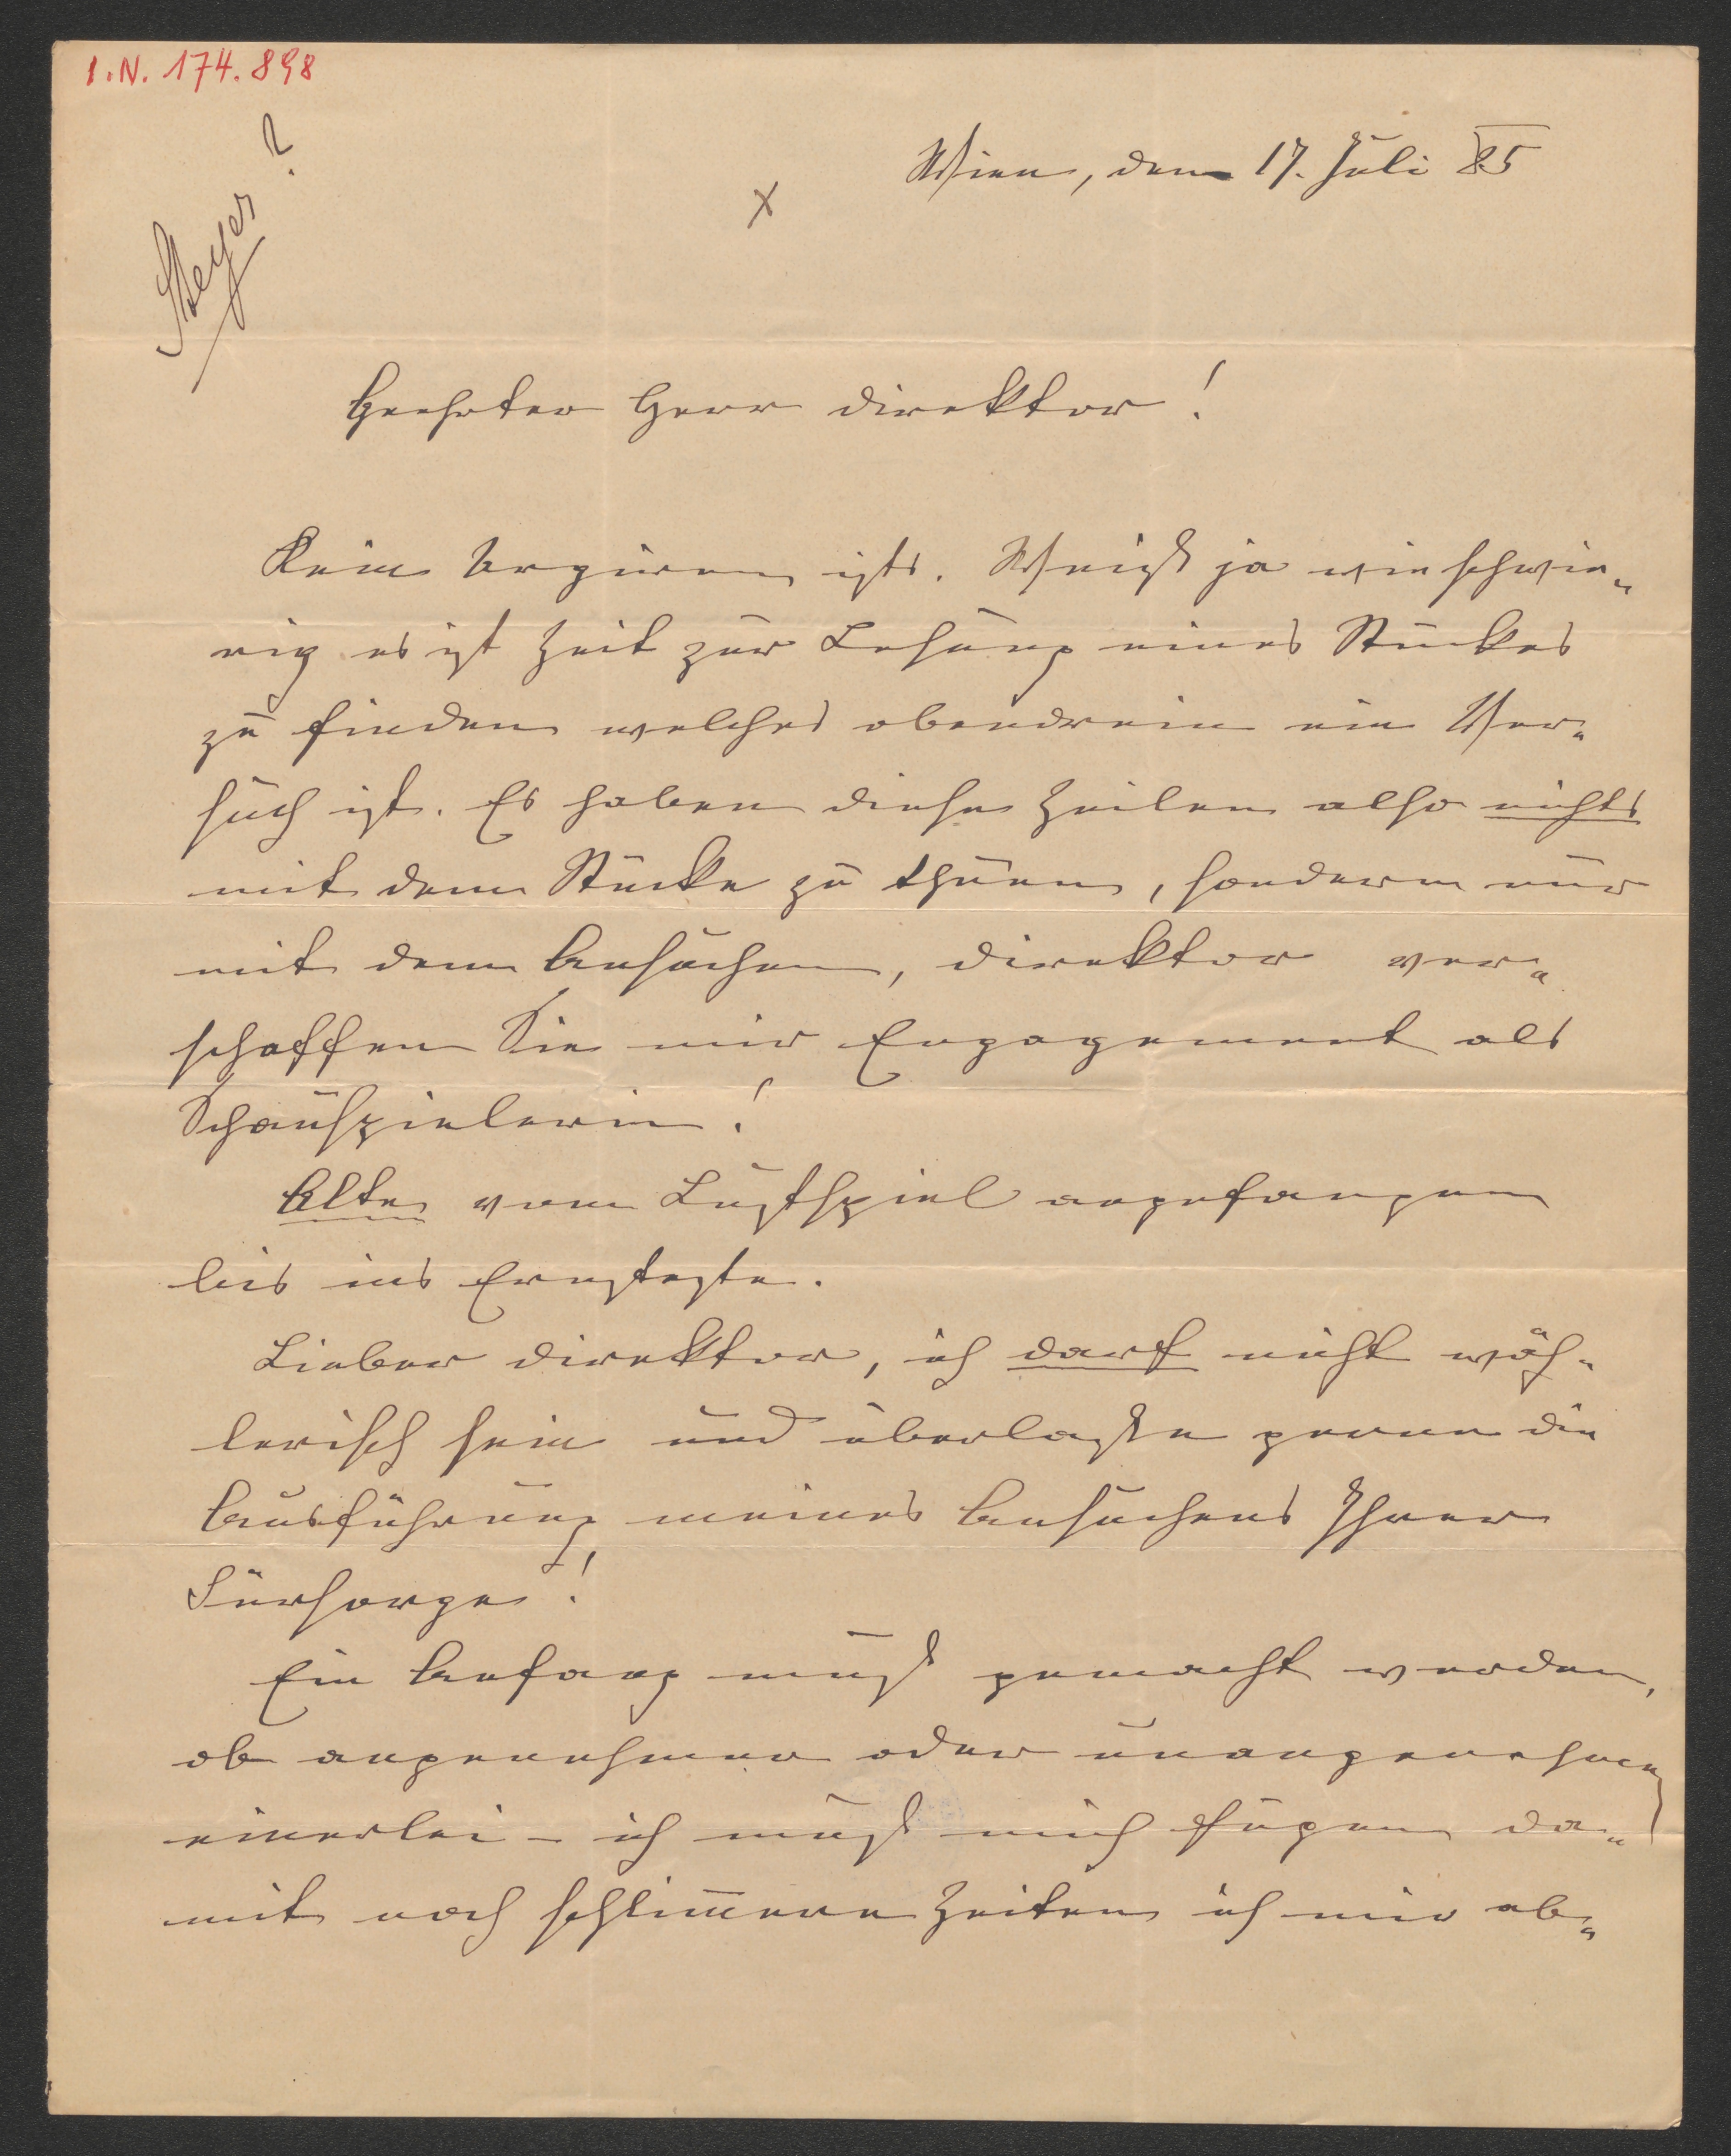 I.N. 174.898
Meyer?
x
Wien, den 17. Juli 85
Geehrter Herr Direktor!
Kein Urgiren ists. Weiß ja wie schwie„
rig es ist Zeit zur Lesung eines Stückes
zu finden welches obendrein ein Ver„
such ist. Es haben diese Zeilen also nichts
mit dem Stücke zu thuen, sondern nur
mit dem Ansuchen, Direktor ver„
schaffen Sie mir Engagement als
Schauspielerin!
Alte vom Lustspiel angefangen
bis ins Ernsteste.
Lieber Direktor, ich darf nicht wäh„
lerisch sein und überlaße gerne die
Ausführung meines Ansuchens Ihrer
Fürsorge!
Ein Anfang muß gemacht werden,
ob angenehmer oder unangenehmer
einerlei – ich muß mich fügen da„
mit noch schlim̅ere Zeiten ich mir ab„